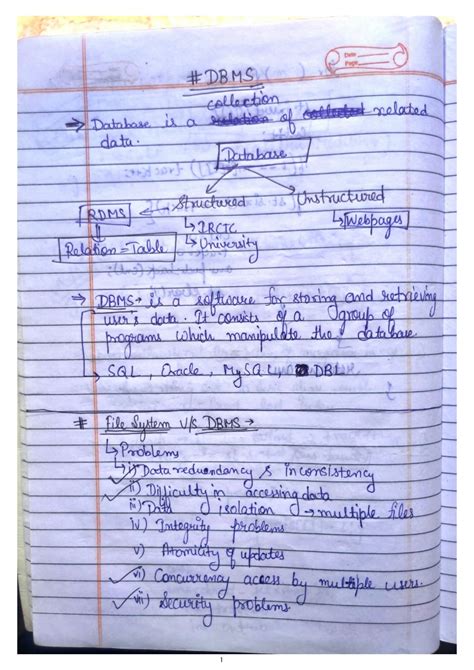 Date
Page
# DBMS
collection
→ Database is a relation of collected related
data.
Database
Structured Unstructured
RDMS ↳ IRCTC ↳ Webpages
Relation = Table ↳ University
→ DBMS → is a software for storing and retrieving
user's data. It consists of a group of
programs which manipulate the database
→ SQL, Oracle, MySQL, DB1
# File System V/s DBMS →
↳ Problems
i) Data reduendancy & inconsistency
ii) Difficulty in accessing data
iii) Data isolation → multiple files
iv) Integrity problems
v) Atomicity of updates
vi) Concurrency access by multiple users.
vii) Security problems
1